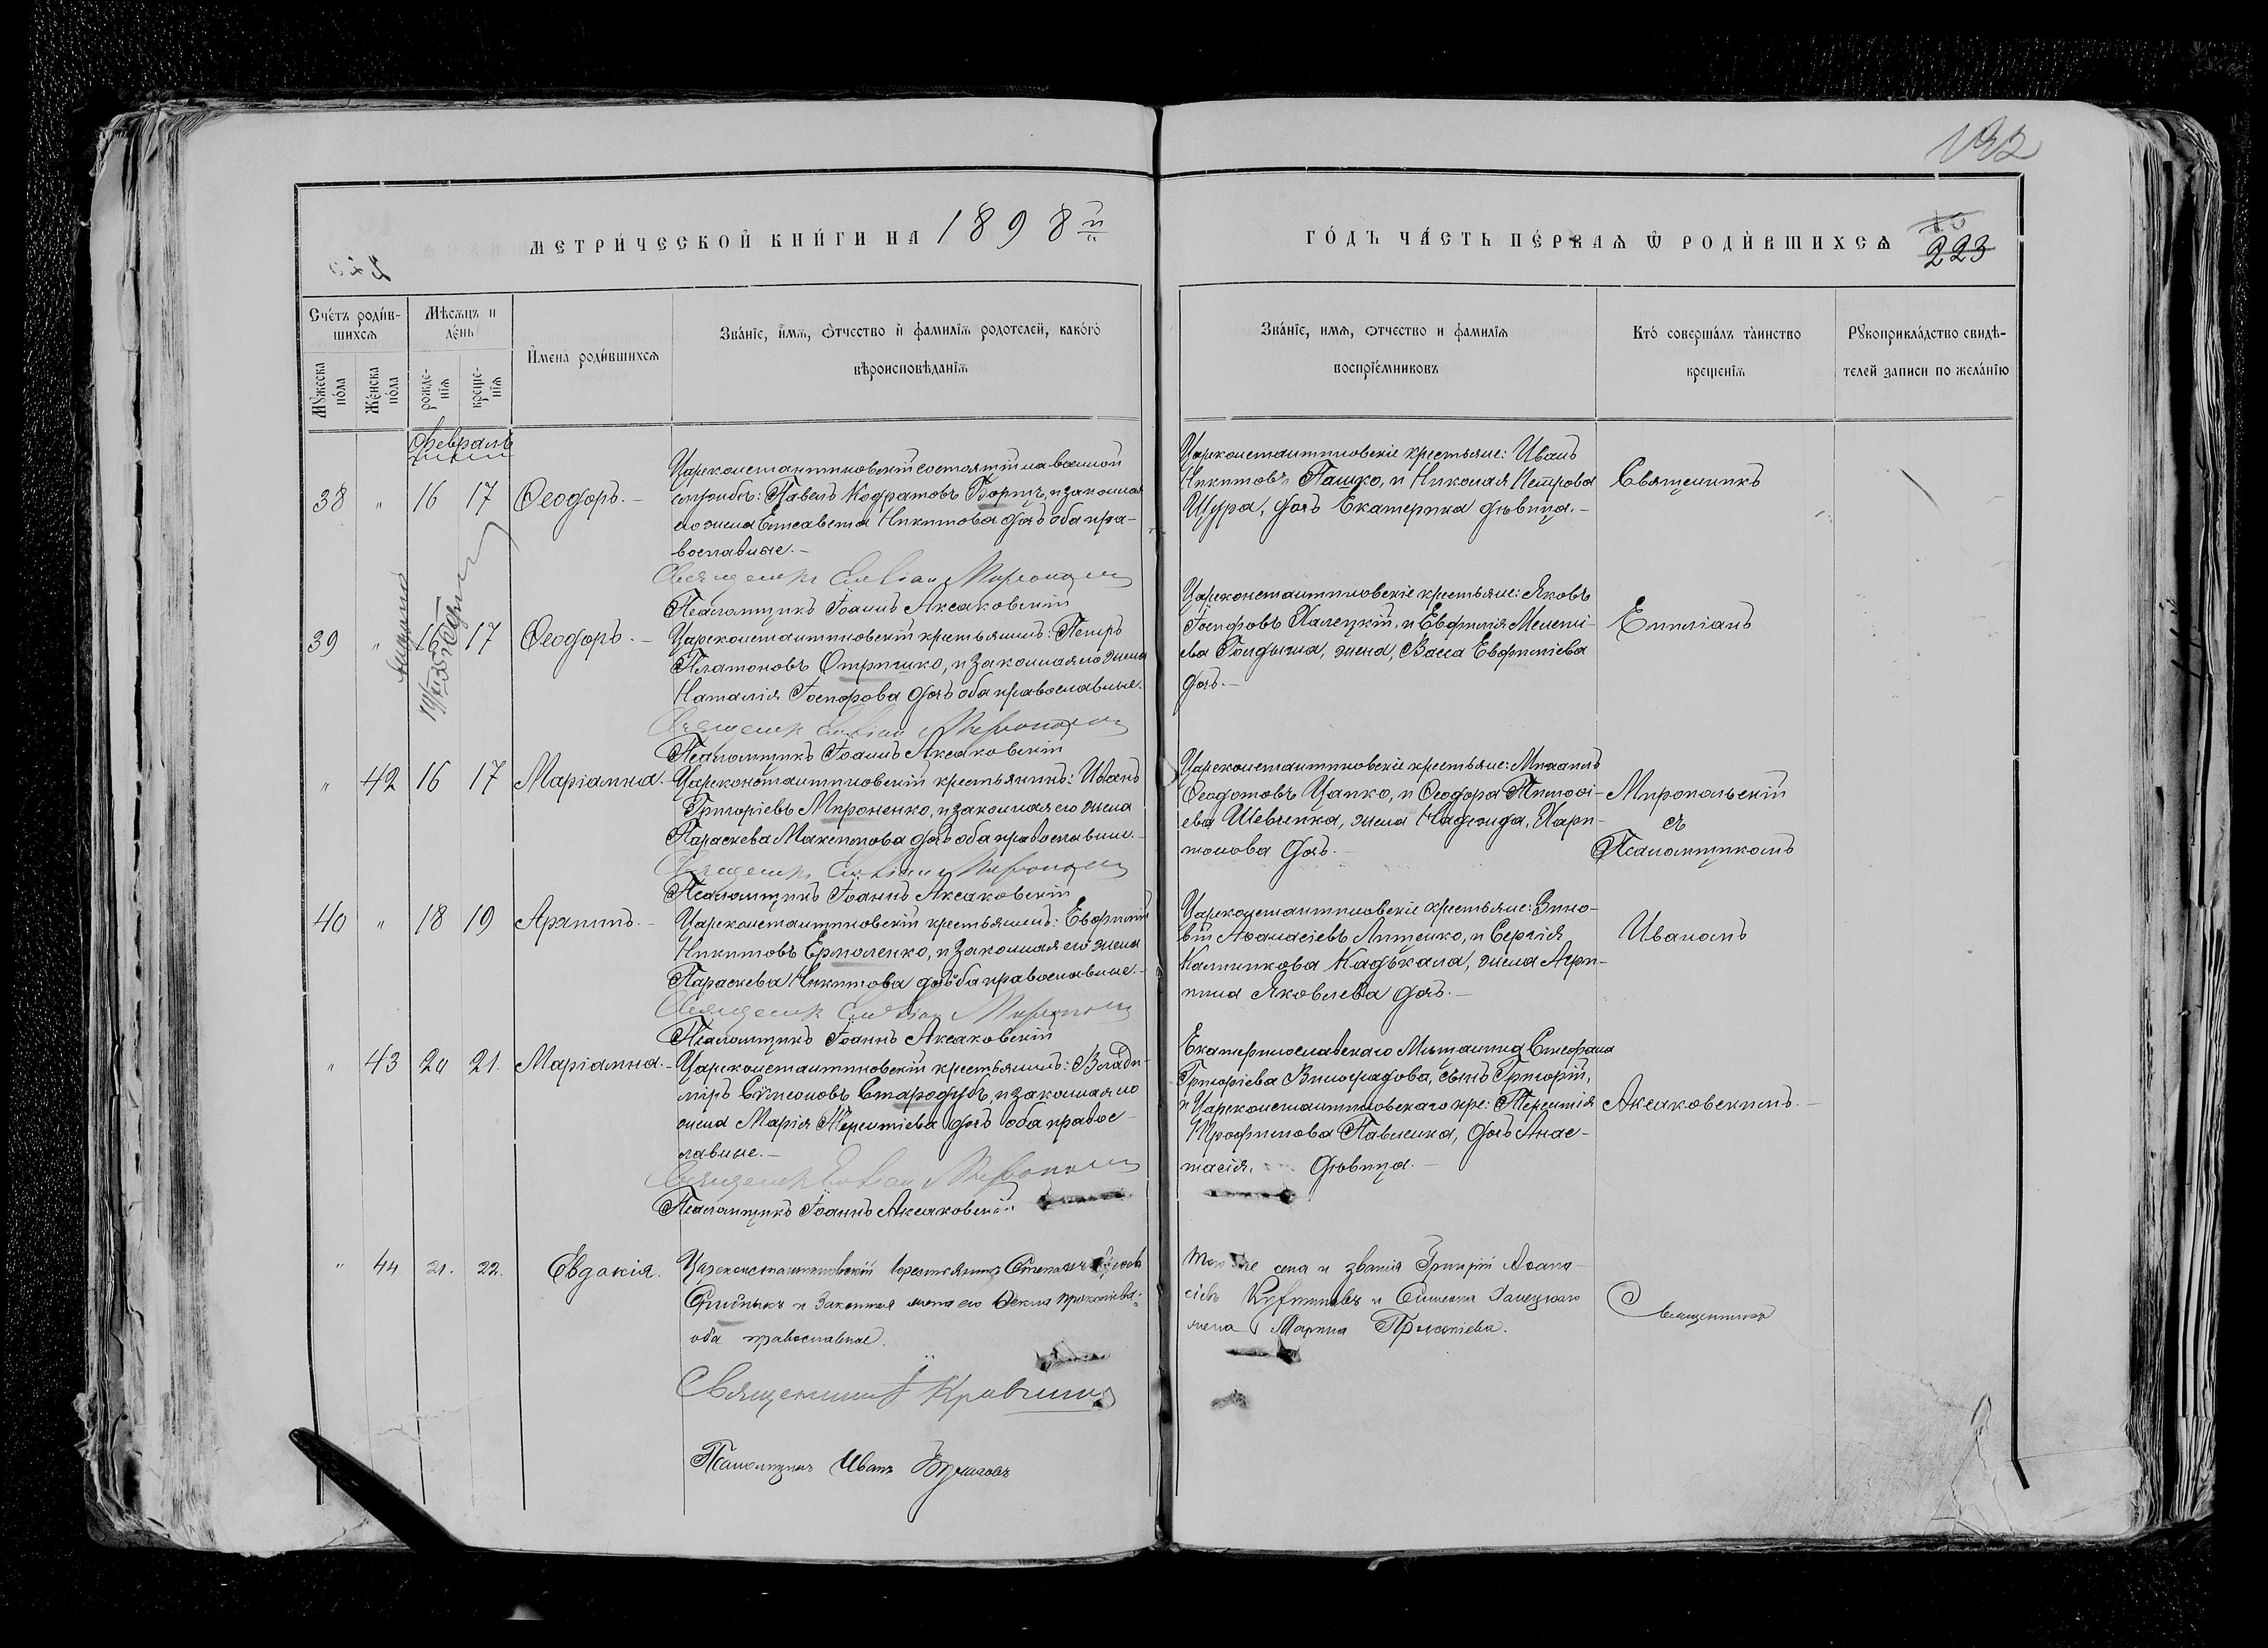 192
МЕТРИ́ЧЕСКОЙ КНИ́ГИ НА 1898й
ГО́ДЪ ЧА́СТЬ ПЕ́РВАѦ Ѿ РОДИ́ВШИХСѦ
223
Сче́тъ роди́в-
шихсѧ
Мꙋ́жеска
по́ла
Же́нска
по́ла
Мѣсѧцъ и
де́нь
рожде-
нїѧ
креще-
нїѧ
И҆мена̀ роди́вшихсѧ
Зва́нїе, и҆́мѧ, ѻ҆́тчество и҆ фамилїѧ родотелей, како́гѡ
вѣроисповѣ́данїѧ
Зва́нїе, имѧ, ѻтчество и фамилїѧ
воспрїе́мниковъ
Кто́ соверша́лъ та́инство
креще́нїѧ
Рꙋкоприкла́дство свидѣ-
телей записи по жела́нїю
Февраль
38 " 16 17 Ѳеодоръ. –
Цареконстантиновскій состоящій на военной
службѣ: Павелъ Кодратовъ Борщъ, и законная
его жена Елисавета Никитова дочь оба пра-
вославные. –
Священникъ
Псаломщикъ Іоаннъ Аксаковскій
Цареконстантиновскіе крестьяне: Иванъ
Никитовъ Пашко, и Николая Петрова
Щура, дочь Екатерина дѣвица. –
Священникъ
39 " 16 17 Ѳеодоръ. –
Цареконстантиновскій крестьянинъ: Петръ
Платоновъ Отришко, и законная его жена
Наталія Іосифова дочь оба православные.
Священникъ
Псаломщикъ Іоаннъ Аксаковскій
Цареконстантиновскіе крестьяне: Яковъ
Іосифовъ Халецкій, и Евфимія Мелеті-
ева жена, Васса Евфиміева
дочь. –
Емиліанъ
" 42 16 17 Маріамна. –
Цареконстантиновскій крестьянинъ: Иванъ
Григоріевъ Мироненко, и законная его жена
Параскева Максимова дочь оба православные. –
Священникъ
Псаломщикъ Іоаннъ Аксаковскій
Цареконстантиновскіе крестьяне: Михаилъ
Ѳеодотовъ Цапко, и Ѳеодора Тимоѳі-
ева Шевченка, жена Надежда, Хари-
тонова дочь. –
Миропольскій
съ
Псаломщикомъ
40 " 18 19 Архипъ. –
Цареконстантиновскій крестьянинъ: Евфимій
Никитовъ Ермоленко, и законная его жена
Параскева Никитова дочь оба православные. –
Священникъ
Псаломщикъ Іоаннъ Аксаковскій
Цареконстантиновскіе крестьяне: Зино-
вій Аѳанасіевъ Лищенко, и Сергія
Каллиникова Кадькала, жена Агрип-
пина Яковлева дочь. –
Иваномъ
" 43 20 21. Маріамна. –
Цареконстантиновскій крестьянинъ: Влади-
міръ Сѵмеоновъ Стародубъ, и законная его
жена Марія Терентіева дочь оба правос-
лавные. –
Священникъ
Псаломщикъ Іоаннъ Аксаковскій
Екатеринославскаго Мѣщанина Стефана
Григоріева Виноградова, сынъ Григорій,
и Цареконстантиновскаго кре: Терентія
Трофимова Павленка, дочь Анас-
тасія. дѣвица. –
Аксаковскимъ. –
" 44 21. 22. Евдакія.
Цареконстантиновскій крестьянинъ Степанъ
и Законная жена его Ѳекла Прокопіева:
оба православные.
Священникъ І Кравчинъ
Псаломщикъ Иванъ
того же села и званія Григорій Аѳана-
сіевъ и Симеона Халецкаго
жена Марина Прокопіева.
Священникъ